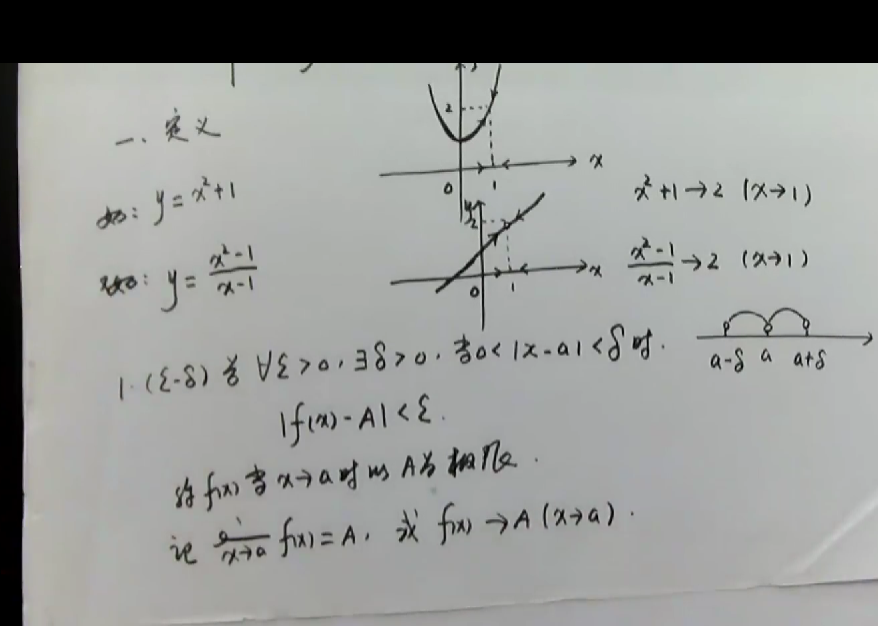 一、定义
如: y = x²+1
又如: y = (x²-1)/(x-1)
y
2
0 1 x
y
2
0 1 x
x²+1→2 (x→1)
(x²-1)/(x-1)→2 (x→1)
1. (ε-δ) 若 ∀ε>0, ∃δ>0, 当0<|x-a|<δ时.
a-δ a a+δ
|f(x)-A|<ε.
称f(x)当x→a时以A为极限.
记 lim x→a f(x)=A, 或 f(x)→A (x→a).